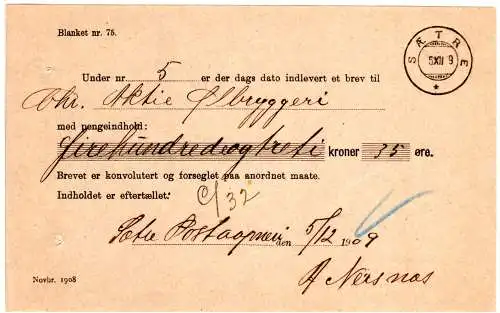 Blanket nr. 75.
SÆTRE
5XII 9
Under nr. 5 er der dags dato indlevert et brev til
Chr. Aktie Ølbryggeri
med pengeindhold:
firehundredeogtreti kroner 35 øre.
Brevet er konvolutert og forseglet paa anordnet maate.
Indholdet er eftertællet.
c/32
Sætre Postaapneri den 5/12 1909
A Nersnæs
Novbr. 1908